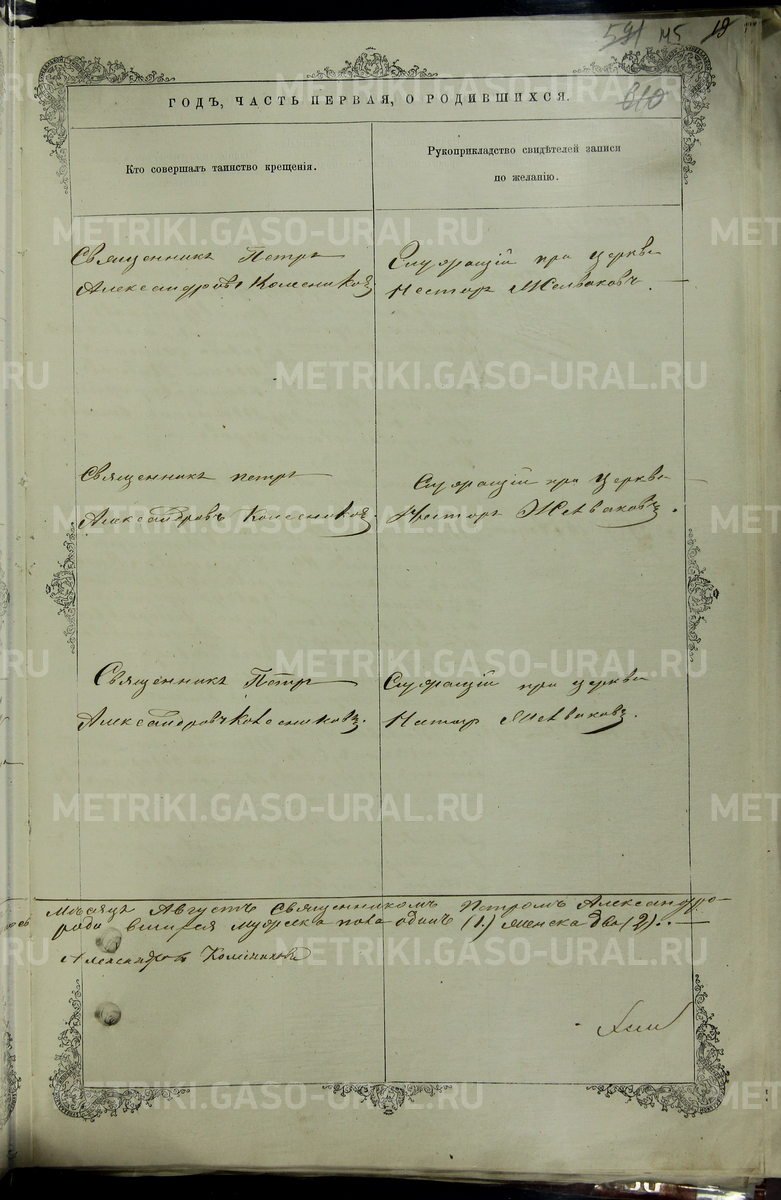 591 М5 18
610
ГОДЪ, ЧАСТЬ ПЕРВАЯ, О РОДИВШИХСЯ.
Кто совершалъ таинство крещенія.
Рукоприкладство свидѣтелей записи
по желанію.
Священникъ Петръ
Александровъ Колесниковъ
Служащій при церкви
Несторъ Желваковъ.
Священникъ петръ
Александровъ Колесниковъ.
Служащій при церкви
Несторъ Желваковъ.
Священникъ Петръ
Александровъ Колесниковъ.
Служащій при церкви
Несторъ Желваковъ.
Мѣсяцъ Августъ Священникомъ Петромъ Александро-
родившихся мужска пола одинъ (1.) женска два (2).
Александровъ Колесниковъ
METRIKI.GASO-URAL.RU